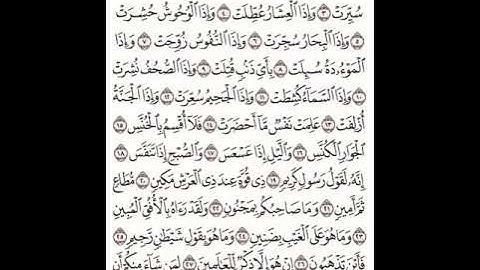 سُيِّرَتْ ٣ وَإِذَا ٱلْعِشَارُ عُطِّلَتْ ٤ وَإِذَا ٱلْوُحُوشُ حُشِرَتْ
٥ وَإِذَا ٱلْبِحَارُ سُجِّرَتْ ٦ وَإِذَا ٱلنُّفُوسُ زُوِّجَتْ ٧ وَإِذَا
ٱلْمَوْءُۥدَةُ سُئِلَتْ ٨ بِأَىِّ ذَنۢبٍ قُتِلَتْ ٩ وَإِذَا ٱلصُّحُفُ نُشِرَتْ
١٠ وَإِذَا ٱلسَّمَآءُ كُشِطَتْ ١١ وَإِذَا ٱلْجَحِيمُ سُعِّرَتْ ١٢ وَإِذَا ٱلْجَنَّةُ
أُزْلِفَتْ ١٣ عَلِمَتْ نَفْسٌ مَّآ أَحْضَرَتْ ١٤ فَلَآ أُقْسِمُ بِٱلْخُنَّسِ ١٥
ٱلْجَوَارِ ٱلْكُنَّسِ ١٦ وَٱلَّيْلِ إِذَا عَسْعَسَ ١٧ وَٱلصُّبْحِ إِذَا تَنَفَّسَ ١٨
إِنَّهُۥ لَقَوْلُ رَسُولٍ كَرِيمٍ ١٩ ذِى قُوَّةٍ عِندَ ذِى ٱلْعَرْشِ مَكِينٍ ٢٠ مُّطَاعٍ
ثَمَّ أَمِينٍ ٢١ وَمَا صَاحِبُكُم بِمَجْنُونٍ ٢٢ وَلَقَدْ رَءَاهُ بِٱلْأُفُقِ ٱلْمُبِينِ
٢٣ وَمَا هُوَ عَلَى ٱلْغَيْبِ بِضَنِينٍ ٢٤ وَمَا هُوَ بِقَوْلِ شَيْطَٰنٍ رَّجِيمٍ ٢٥
فَأَيْنَ تَذْهَبُونَ ٢٦ إِنْ هُوَ إِلَّا ذِكْرٌ لِّلْعَٰلَمِينَ ٢٧ لِمَن شَآءَ مِنكُمْ أَن